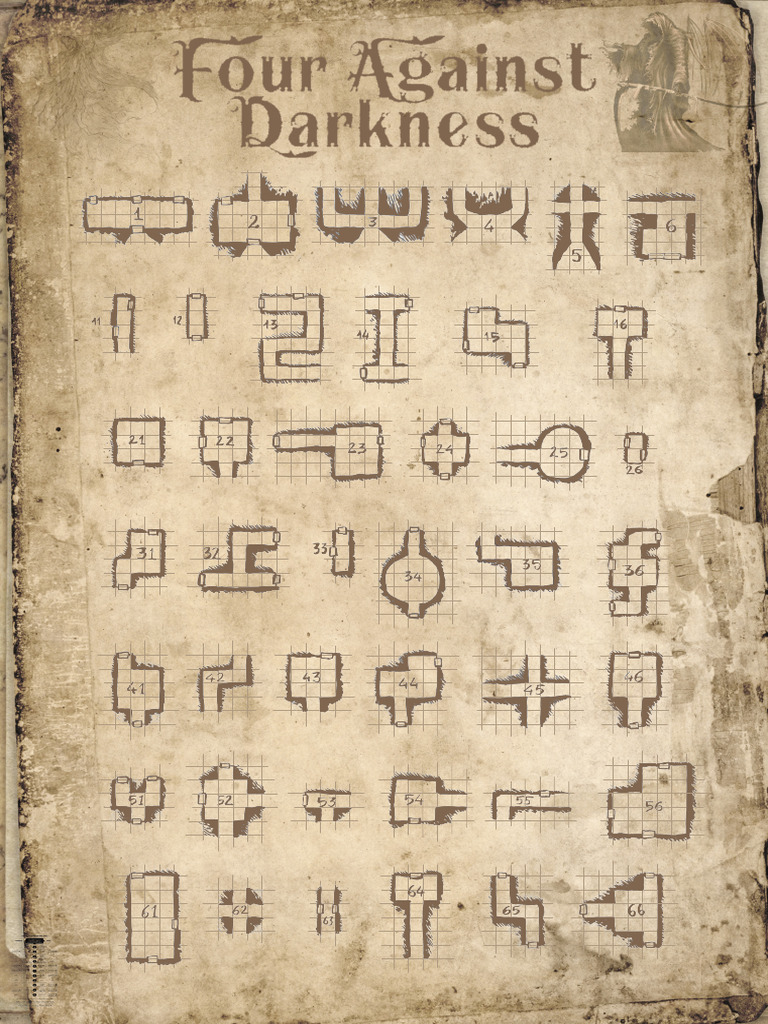 Four Against
Darkness
1 2 3 4 5 6
11 12 13 14 15 16
21 22 23 24 25 26
31 32 33 34 35 36
41 42 43 44 45 46
51 52 53 54 55 56
61 62 63 64 65 66